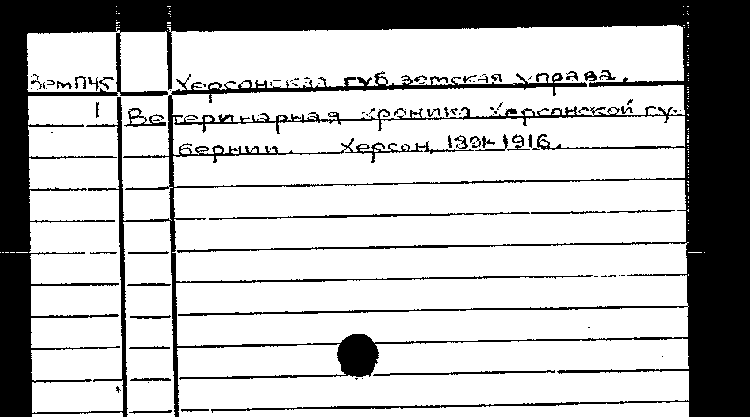 ЗемП45 Херсонская губ. земская управа.
1 Ветеринарная хроника Херсонской гу-
бернии. Херсон, 1891-1916.